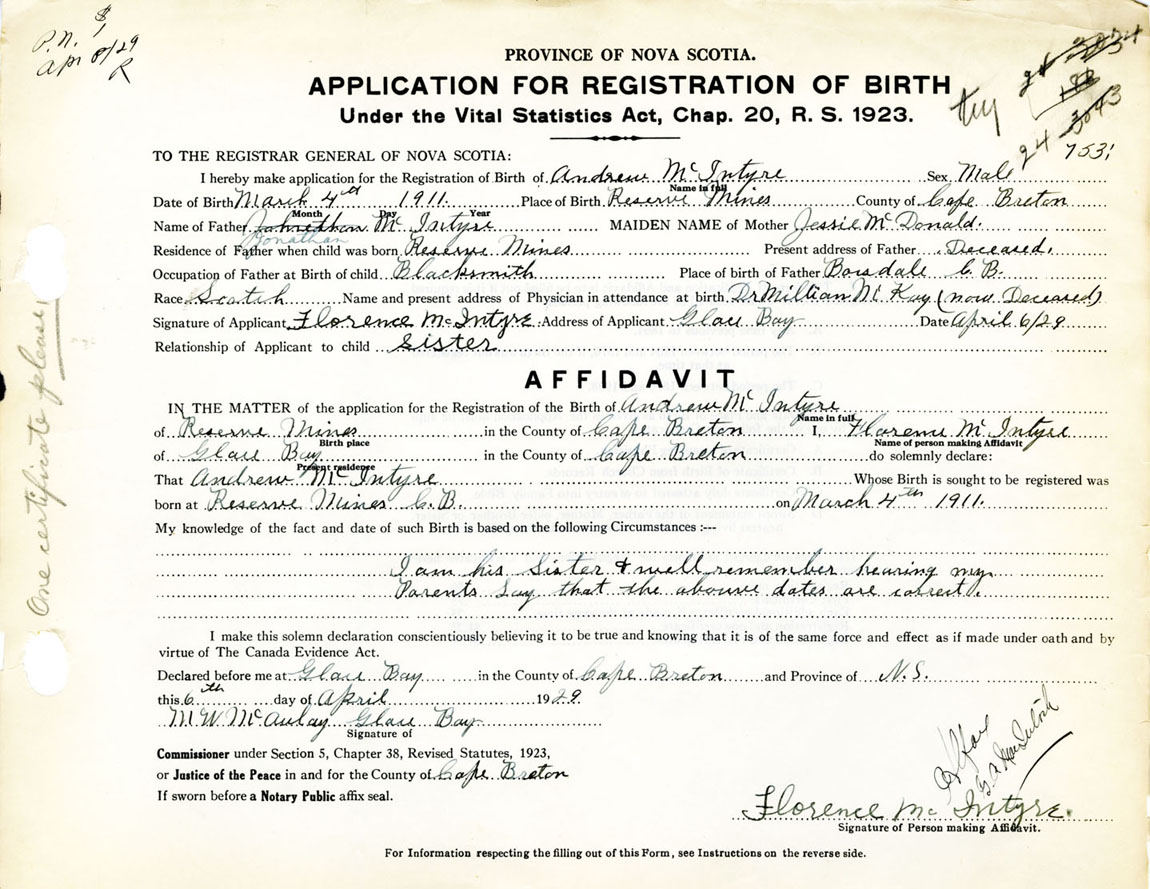 P.N. $1
Apr 8/29
R
PROVINCE OF NOVA SCOTIA.
APPLICATION FOR REGISTRATION OF BIRTH
Under the Vital Statistics Act, Chap. 20, R. S. 1923.
24
188
24 3043
7531
TO THE REGISTRAR GENERAL OF NOVA SCOTIA:
I hereby make application for the Registration of Birth of Andrew McIntyre Sex Male
Name in full
Date of Birth March 4th 1911. Place of Birth Reserve Mines County of Cape Breton
Month Day Year
Name of Father Johnathan McIntyre MAIDEN NAME of Mother Jessie McDonald.
Jonathan
Residence of Father when child was born Reserve Mines Present address of Father Deceased.
Occupation of Father at Birth of child Blacksmith Place of birth of Father Boisdale C.B.
Race Scotch Name and present address of Physician in attendance at birth Dr Millian McKay (now Deceased)
Signature of Applicant Florence McIntyre Address of Applicant Glace Bay Date April 6/29
Relationship of Applicant to child Sister
AFFIDAVIT
IN THE MATTER of the application for the Registration of the Birth of Andrew McIntyre
Name in full
of Reserve Mines in the County of Cape Breton I, Florence McIntyre
Birth place Name of person making Affidavit
of Glace Bay in the County of Cape Breton do solemnly declare:
Present residence
That Andrew McIntyre Whose Birth is sought to be registered was
born at Reserve Mines C.B. on March 4th 1911.
My knowledge of the fact and date of such Birth is based on the following Circumstances :---
I am his Sister & well remember hearing my
Parents Say that the abouve dates are correct.
I make this solemn declaration conscientiously believing it to be true and knowing that it is of the same force and effect as if made under oath and by
virtue of The Canada Evidence Act.
Declared before me at Glace Bay in the County of Cape Breton and Province of N.S.
this 6th day of April 1929.
M.W. McAulay Glace Bay
Signature of
Commissioner under Section 5, Chapter 38, Revised Statutes, 1923,
or Justice of the Peace in and for the County of Cape Breton
If sworn before a Notary Public affix seal.
Florence McIntyre.
Signature of Person making Affidavit.
For Information respecting the filling out of this Form, see Instructions on the reverse side.
One certificate please